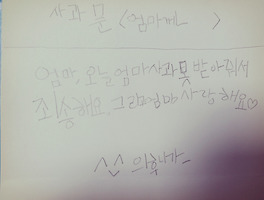 사과문 <엄마께>
엄마, 오늘 엄마 사과 못 받아줘서
죄송해요. 그리고 엄마 사랑해요♡
^^ 의후니가-